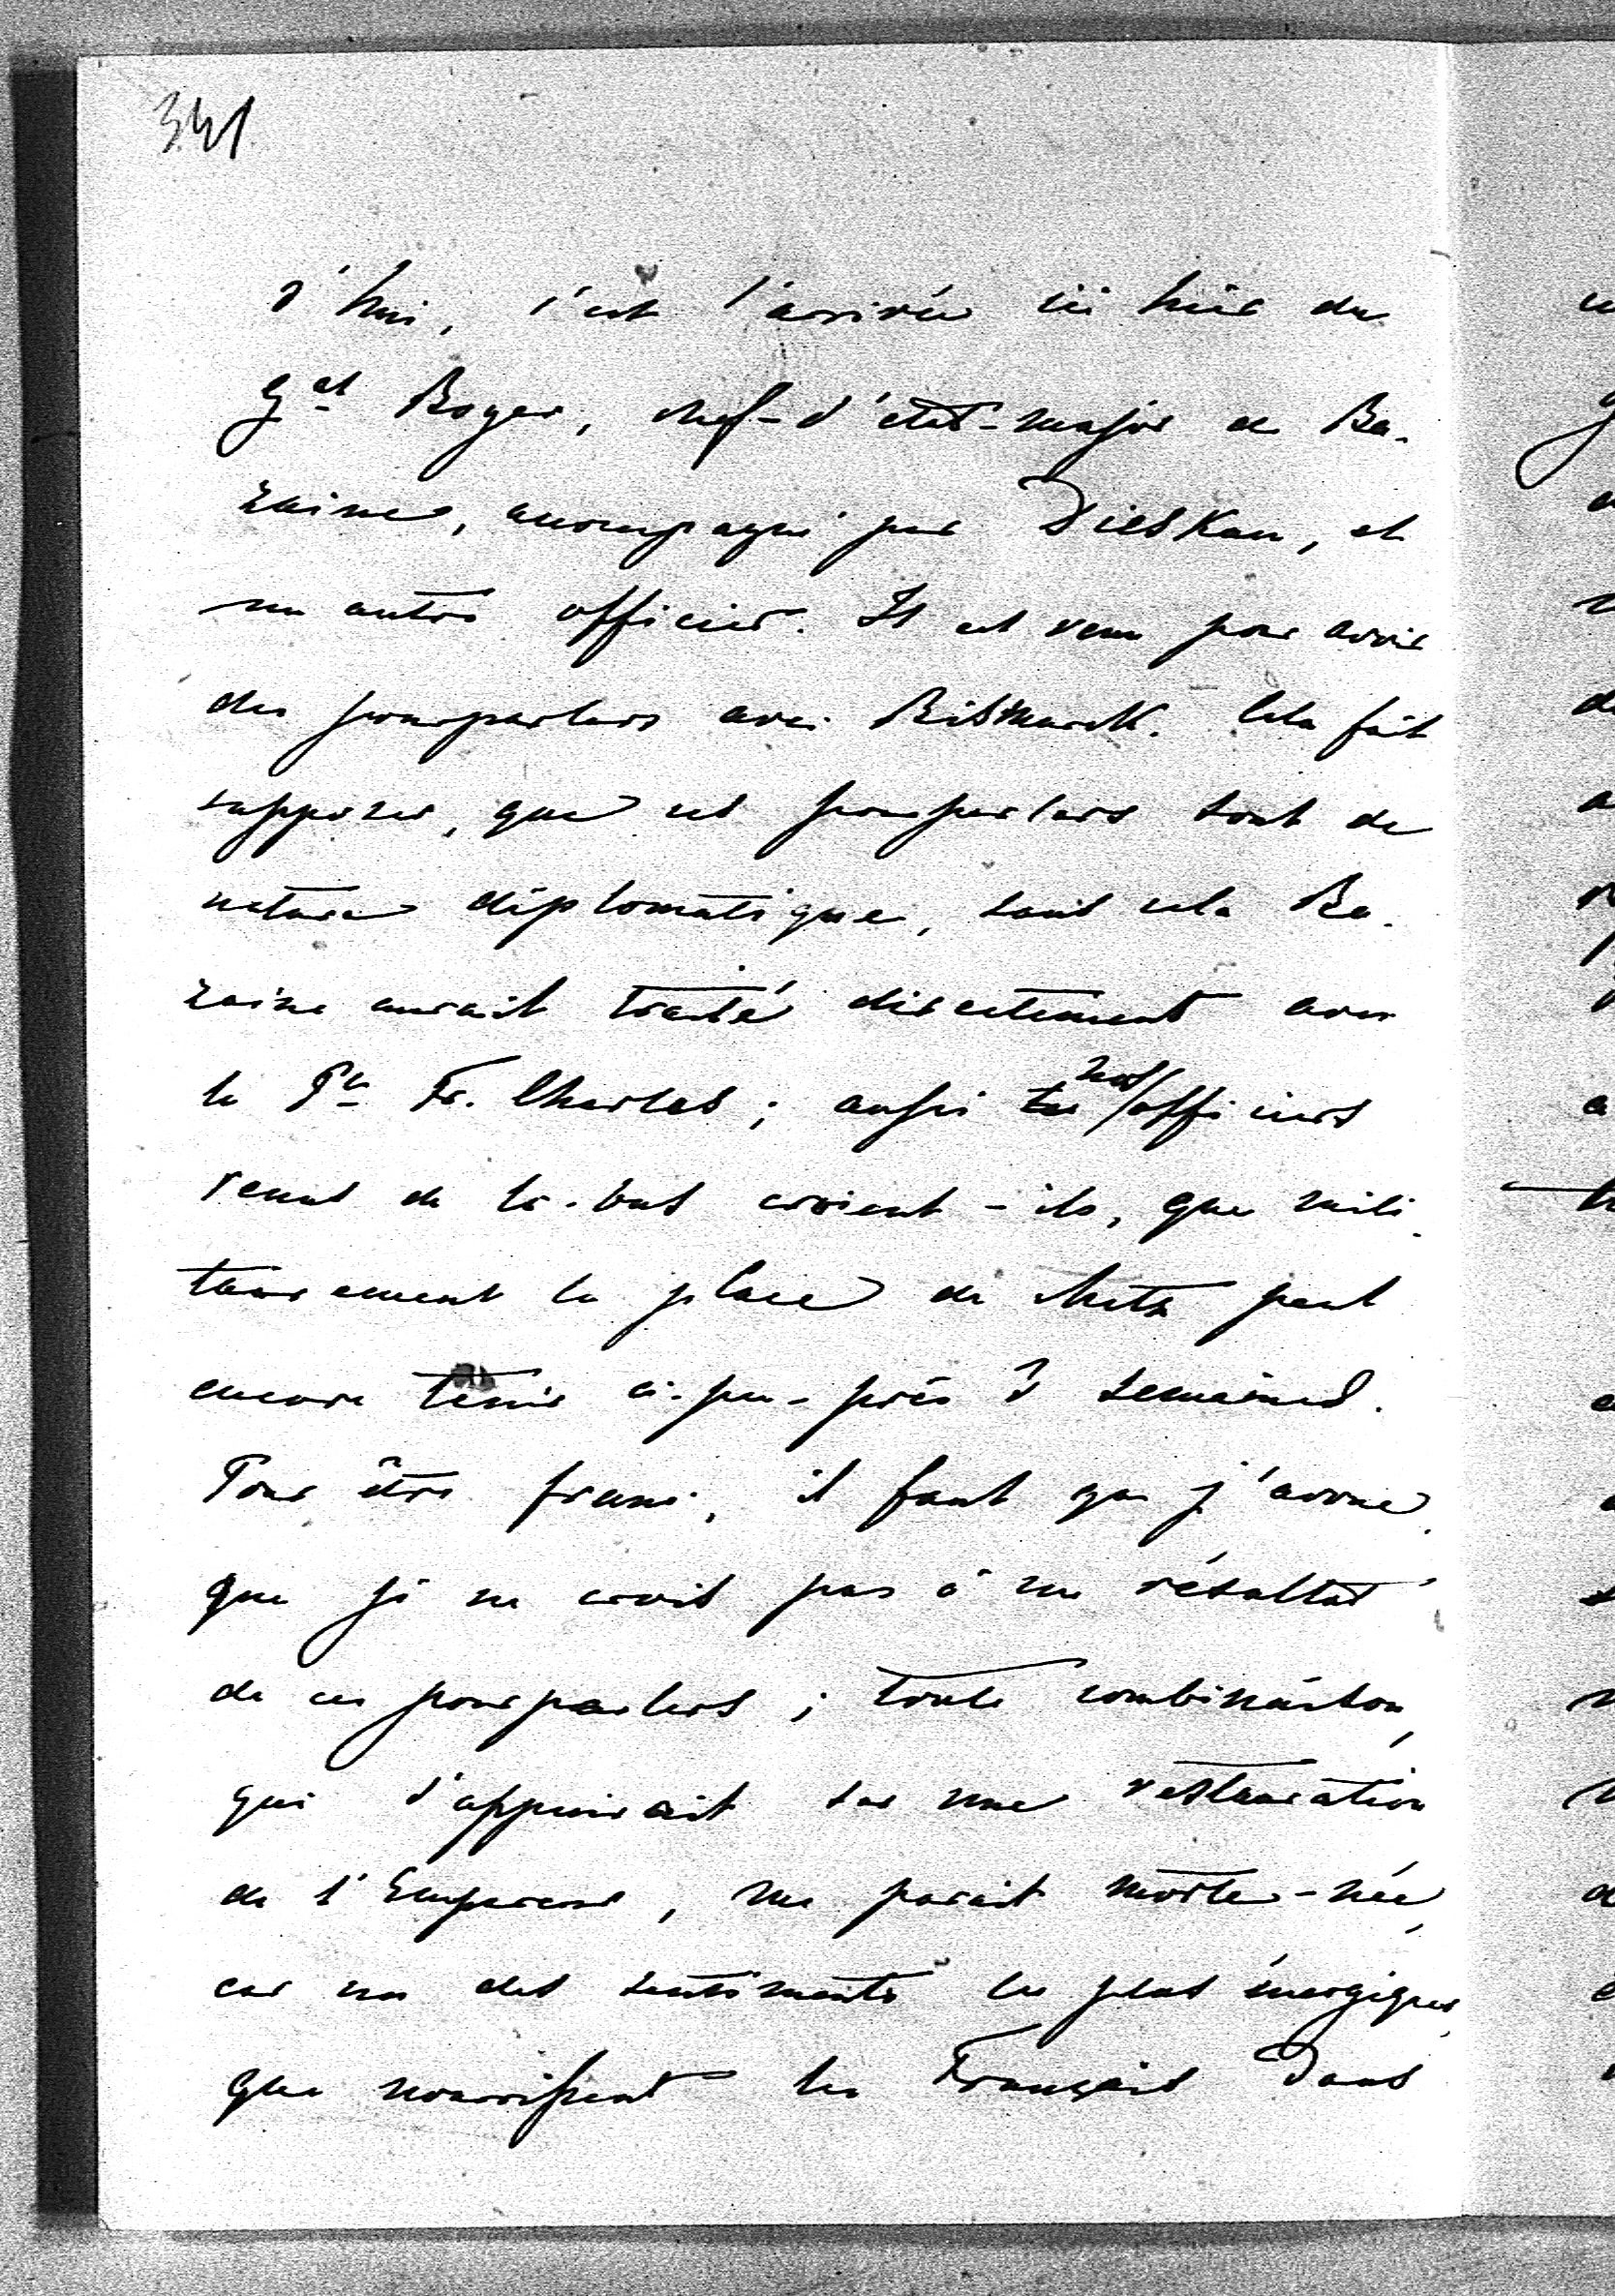 341
d'hui, c'est l'arrivée ici hier du
Gal Boyer, chef-d'état-major de Ba-
zaine, accompagné par Dieskau, et
un autre officier. Il est venu pour avoir
des pourparlers avec Bismarck. Cela fait
supposer, que ces pourparlers sont de
nature diplomatique, sans cela Ba-
zaine aurait traité directement avec
le Pce Fr. Charles; aussi nos officiers
venus de là-bas croient-ils, que mili-
tairement la place de Metz peut
encore tenir à-peu-près 3 semaines.
Pour être franc, il faut que j'avoue,
que je ne crois pas à un résultat
de ces pourparlers; toute combinaison,
qui s'appuierait sur une restauration
de l'Empereur, me parait morte-née,
car un des sentiments les plus énergiques,
que nourrissent les Français dans